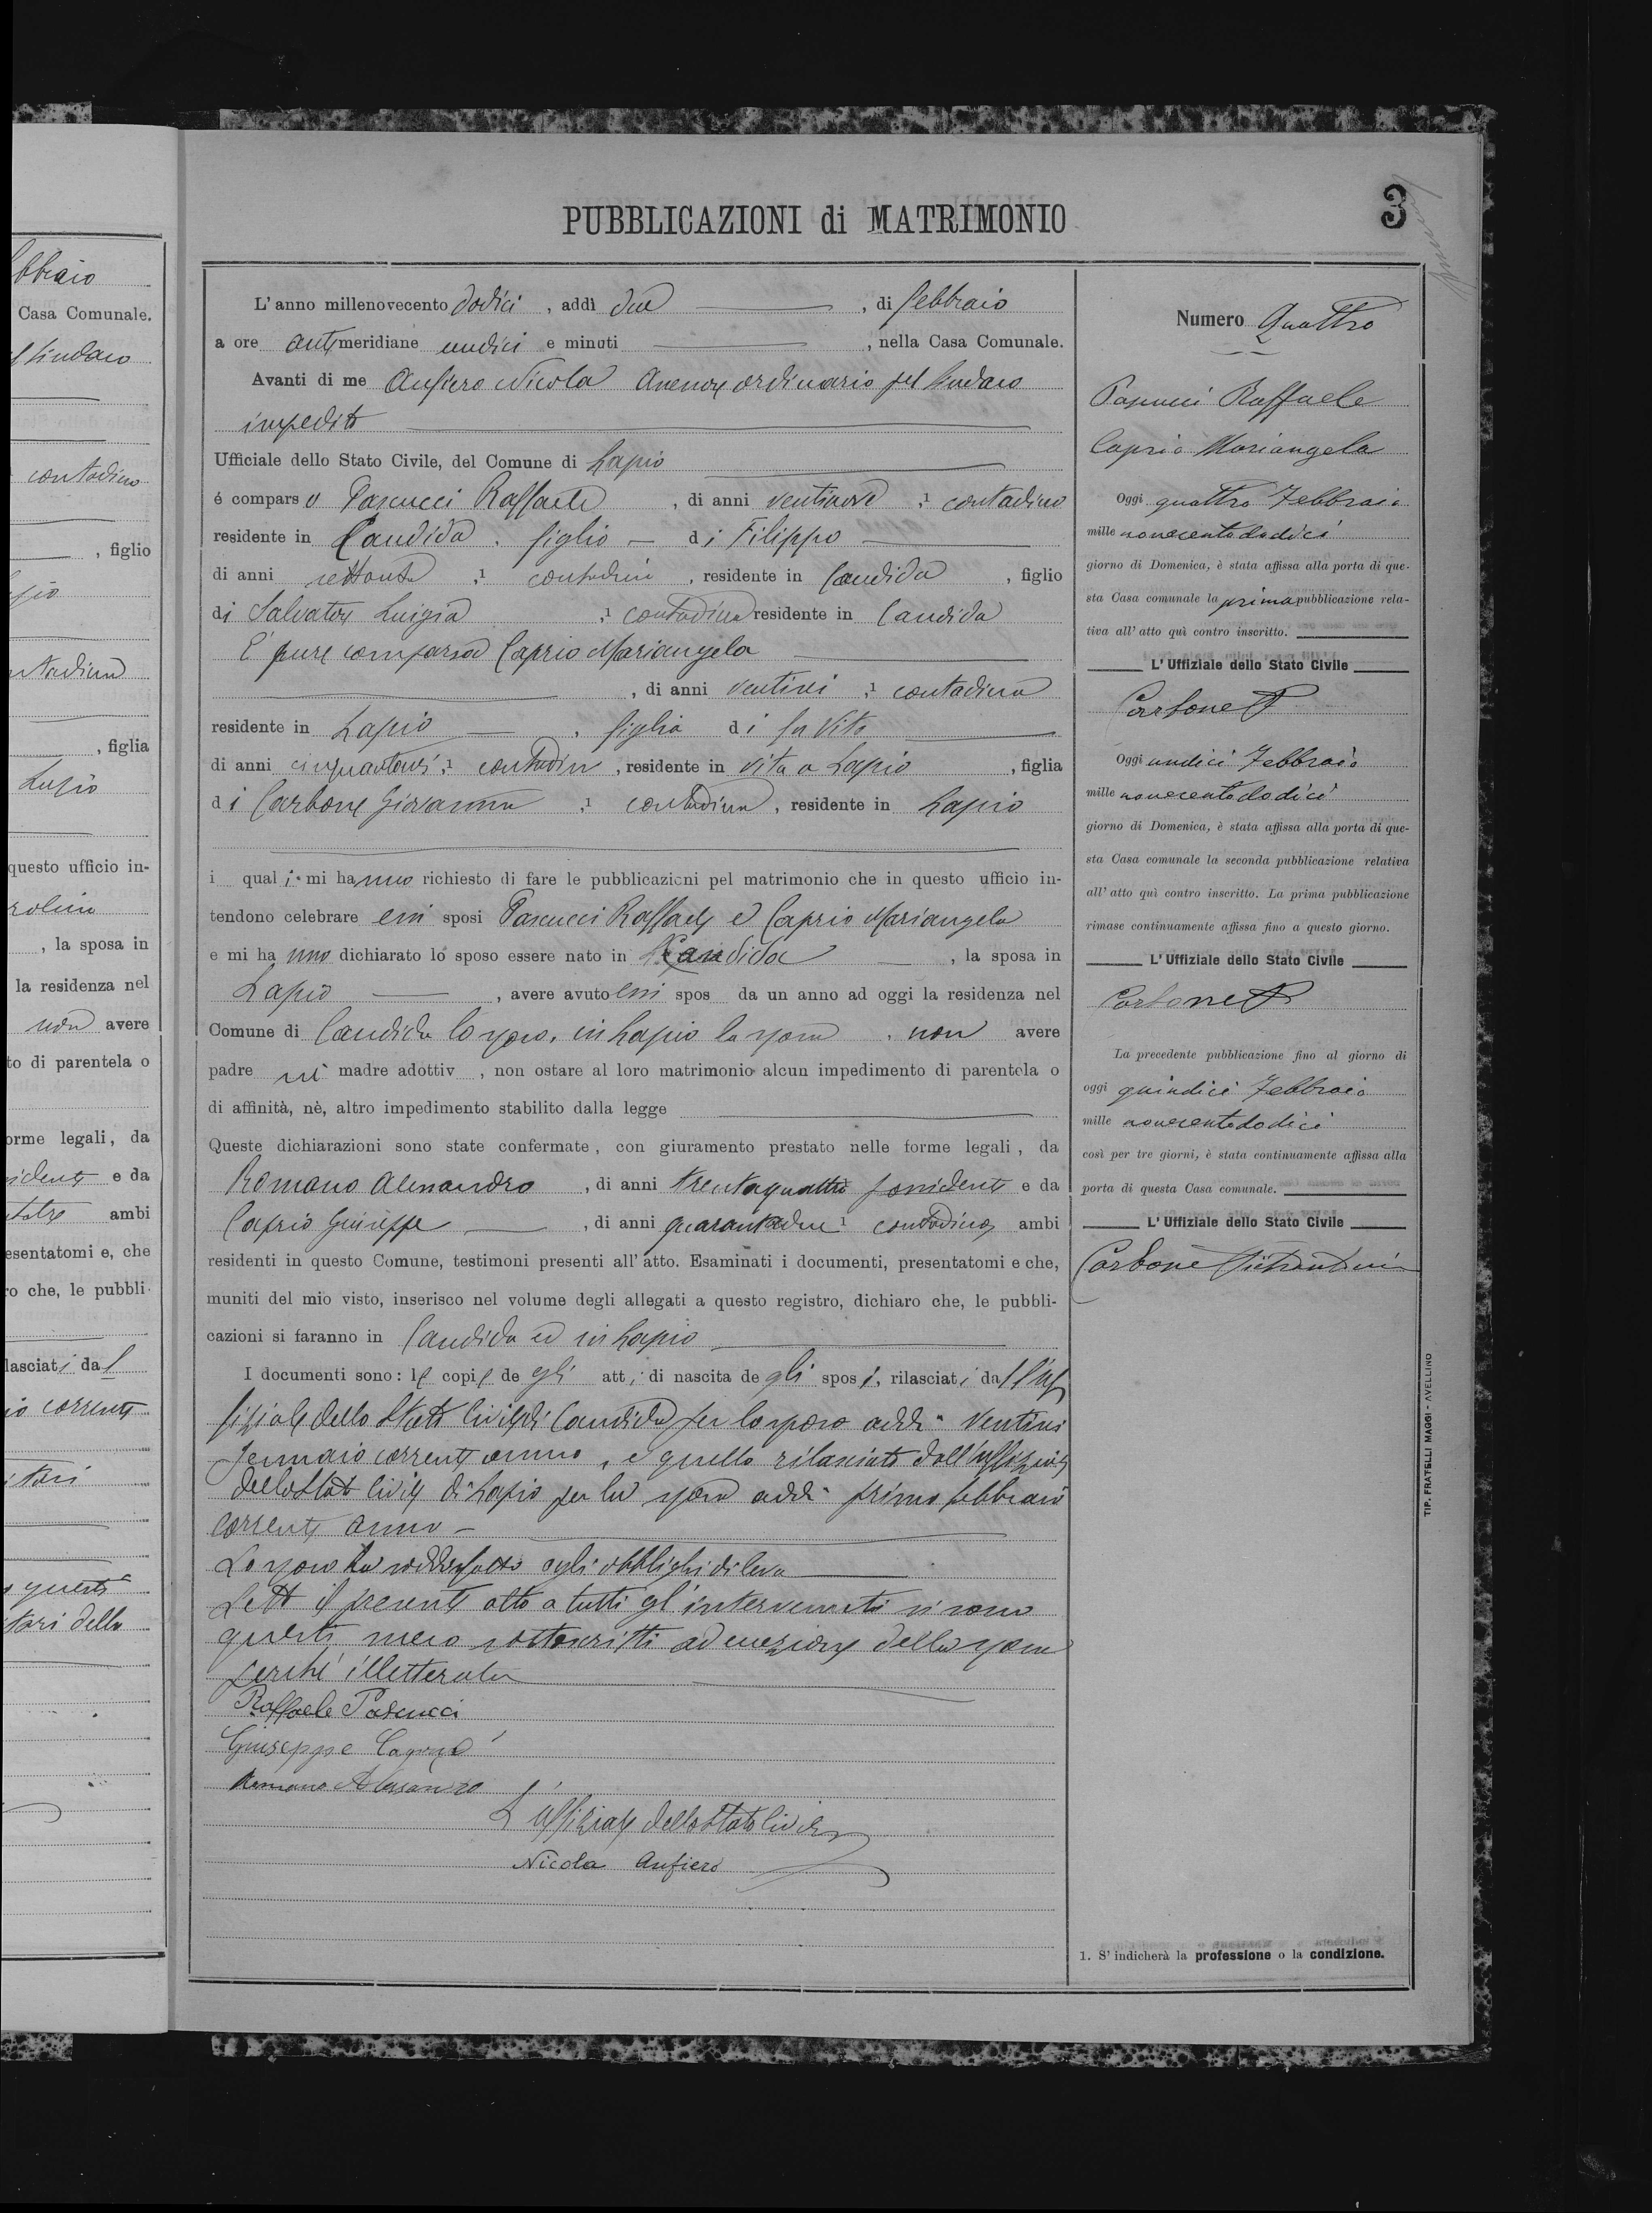 bbraio
Casa Comunale.
Sindaco
contadino
, figlio
, figlia
Lapio
questo ufficio in-
, la sposa in
la residenza nel
non avere
to di parentela o
orme legali, da
e da
ambi
esentatomi e, che
ro che, le pubbli-
lasciati dal
corrente
questi
della
PUBBLICAZIONI di MATRIMONIO
3
L'anno millenovecento dodici, addì due, di febbraio
a ore antimeridiane undici e minuti, nella Casa Comunale.
Avanti di me Anfiero Nicola Assessore ordinario pel Sindaco
impedito
Ufficiale dello Stato Civile, del Comune di Lapio
é comparso Pascucci Raffaele, di anni ventinove, 1 contadino
residente in Candida, figlio di Filippo
di anni settanta, 1 contadino, residente in Candida, figlio
di Salvatore Luigia, 1 contadina residente in Candida
E' pure comparsa Caprio Mariangela
, di anni ventisei, 1 contadina
residente in Lapio, figlia di fu Vito
di anni, 1 contadin, residente in vita a Lapio, figlia
di Carbone Giovanna, 1 contadina, residente in Lapio
i quali mi hanno richiesto di fare le pubblicazioni pel matrimonio che in questo ufficio in-
tendono celebrare essi sposi Pascucci Raffaele e Caprio Mariangela
e mi hanno dichiarato lo sposo essere nato in Candida, la sposa in
Lapio, avere avuto essi spos da un anno ad oggi la residenza nel
Comune di Candida lo sposo, in Lapio la sposa, non avere
padre nè madre adottiv, non ostare al loro matrimonio alcun impedimento di parentela o
di affinità, nè, altro impedimento stabilito dalla legge
Queste dichiarazioni sono state confermate, con giuramento prestato nelle forme legali, da
Romano Alessandro, di anni trentaquattro possidente e da
Caprio Giuseppe, di anni quarantadue 1 contadino, ambi
residenti in questo Comune, testimoni presenti all'atto. Esaminati i documenti, presentatomi e che,
muniti del mio visto, inserisco nel volume degli allegati a questo registro, dichiaro che, le pubbli-
cazioni si faranno in Candida ed in Lapio
I documenti sono: le copie de gli atti di nascita de gli sposi, rilasciati dall'Uf
fiziale dello Stato Civile di Candida per lo sposo addì ventisei
Jennaio corrente anno, e quello rilasciato dall'uffiziale
dello Stato Civile di Lapio per la sposa addì primo febbraio
corrente anno
Lo sposo ha soddisfatto agli obblighi di leva
Letto il presente atto a tutti gl'intervenuti si sono
questi meco sottoscritti ad eccezione della sposa
perché illetterata
Raffaele Pascucci
Giuseppe Caprio
Romano Alessandro
L'uffiziale dello Stato Civile
Nicola Anfiero
Numero Quattro
Pascucci Raffaele
Caprio Mariangela
Oggi quattro Febbraio
mille novecentododici
giorno di Domenica, è stata affissa alla porta di que-
sta Casa comunale la prima pubblicazione rela-
tiva all'atto quì contro inscritto.
L'Uffiziale dello Stato Civile
Carbone P
Oggi undici Febbraio
mille novecentododici
giorno di Domenica, è stata affissa alla porta di que-
sta Casa comunale la seconda pubblicazione relativa
all'atto quì contro inscritto. La prima pubblicazione
rimase continuamente affissa fino a questo giorno.
L'Uffiziale dello Stato Civile
Carbone P
La precedente pubblicazione fino al giorno di
oggi quindici Febbraio
mille novecentododici
così per tre giorni, è stata continuamente affissa alla
porta di questa Casa comunale.
L'Uffiziale dello Stato Civile
Carbone
1. S'indicherà la professione o la condizione.
TIP. FRATELLI MAGGI - AVELLINO